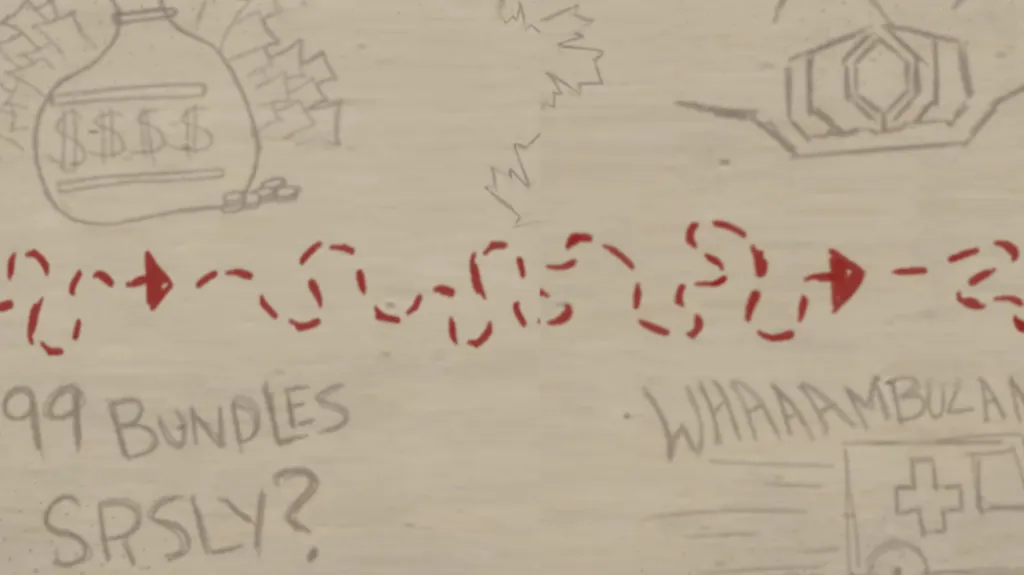 $ $ $ $
99 BUNDLES
SRSLY?
WHAAAMBULAN